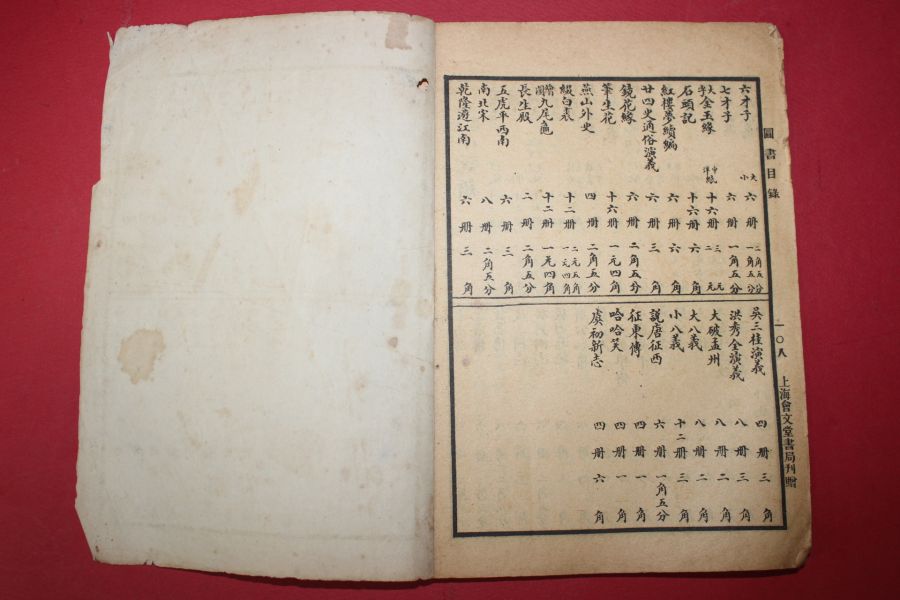 圖書目錄
一〇八
上海會文堂書局刊贈
六才子 大小 六册 二角五分 一角五分
七才子 六册 一角五分
大字金玉緣 十六册 三元 二元
石頭記 十六册 六角
紅樓夢續編 六册 六角
廿四史通俗演義 六册 三角
鏡花緣 六册 二角五分
筆生花 十六册 一元四角
燕山外史 四册 二角五分
綴白裘 十二册 二元五角 一元四角
九尾龜 十二册 一元四角
長生殿 二册 二角五分
五虎平西南 六册 三角
南北宋 八册 二角五分
乾隆遊江南 六册 三角
吳三桂演義 四册 三角
洪秀全演義 八册 三角
大破孟州 八册 二角
大八義 八册 二角
小八義 十二册 三角
説唐征西 六册 一角五分
征東傳 一册 一角
哈哈笑 四册 一角
虞初新志 四册 六角